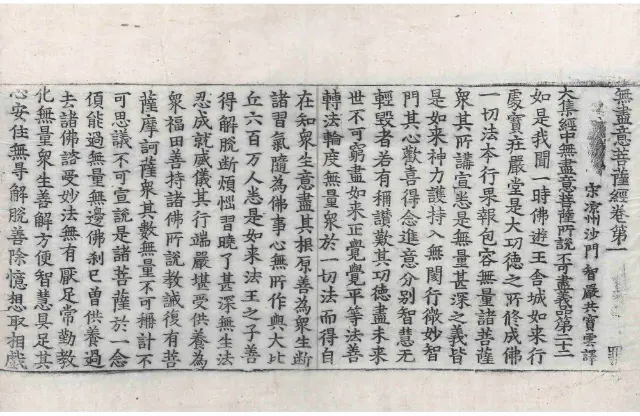 無盡意菩薩經卷第一
宋涼州沙門智嚴共寶雲譯
大集經中無盡意菩薩所說不可盡義品第三十二
如是我聞一時佛遊王舍城如來行
處寶莊嚴堂是大功德之所修成佛
一切法本行果報包容無量諸菩薩
衆其所講宣悉是無量甚深之義皆
是如來神力護持入無閡行微妙智
門其心歡喜得念進意分別智慧无
輕毀者若有稱讚歎其功德盡未來
世不可窮盡如來正覺覺平等法善
轉法輪度無量衆於一切法而得自
在知衆生意盡其根原善為衆生斷
諸習氣隨為佛事心無所作與大比
丘六百万人悉是如來法王之子善
得解脫斷煩惱習曉了甚深無生法
忍成就威儀其行端嚴堪受供養為
衆福田善持諸佛所說教誡復有菩
薩摩訶薩衆其數無量不可稱計不
可思議不可宣說是諸菩薩於一念
頃能過無量無邊佛刹已曾供養過
去諸佛諮受妙法無有厭足常勤教
化無量衆生善解方便智慧具足其
心安住無㝵解脫善除憶想取相戲